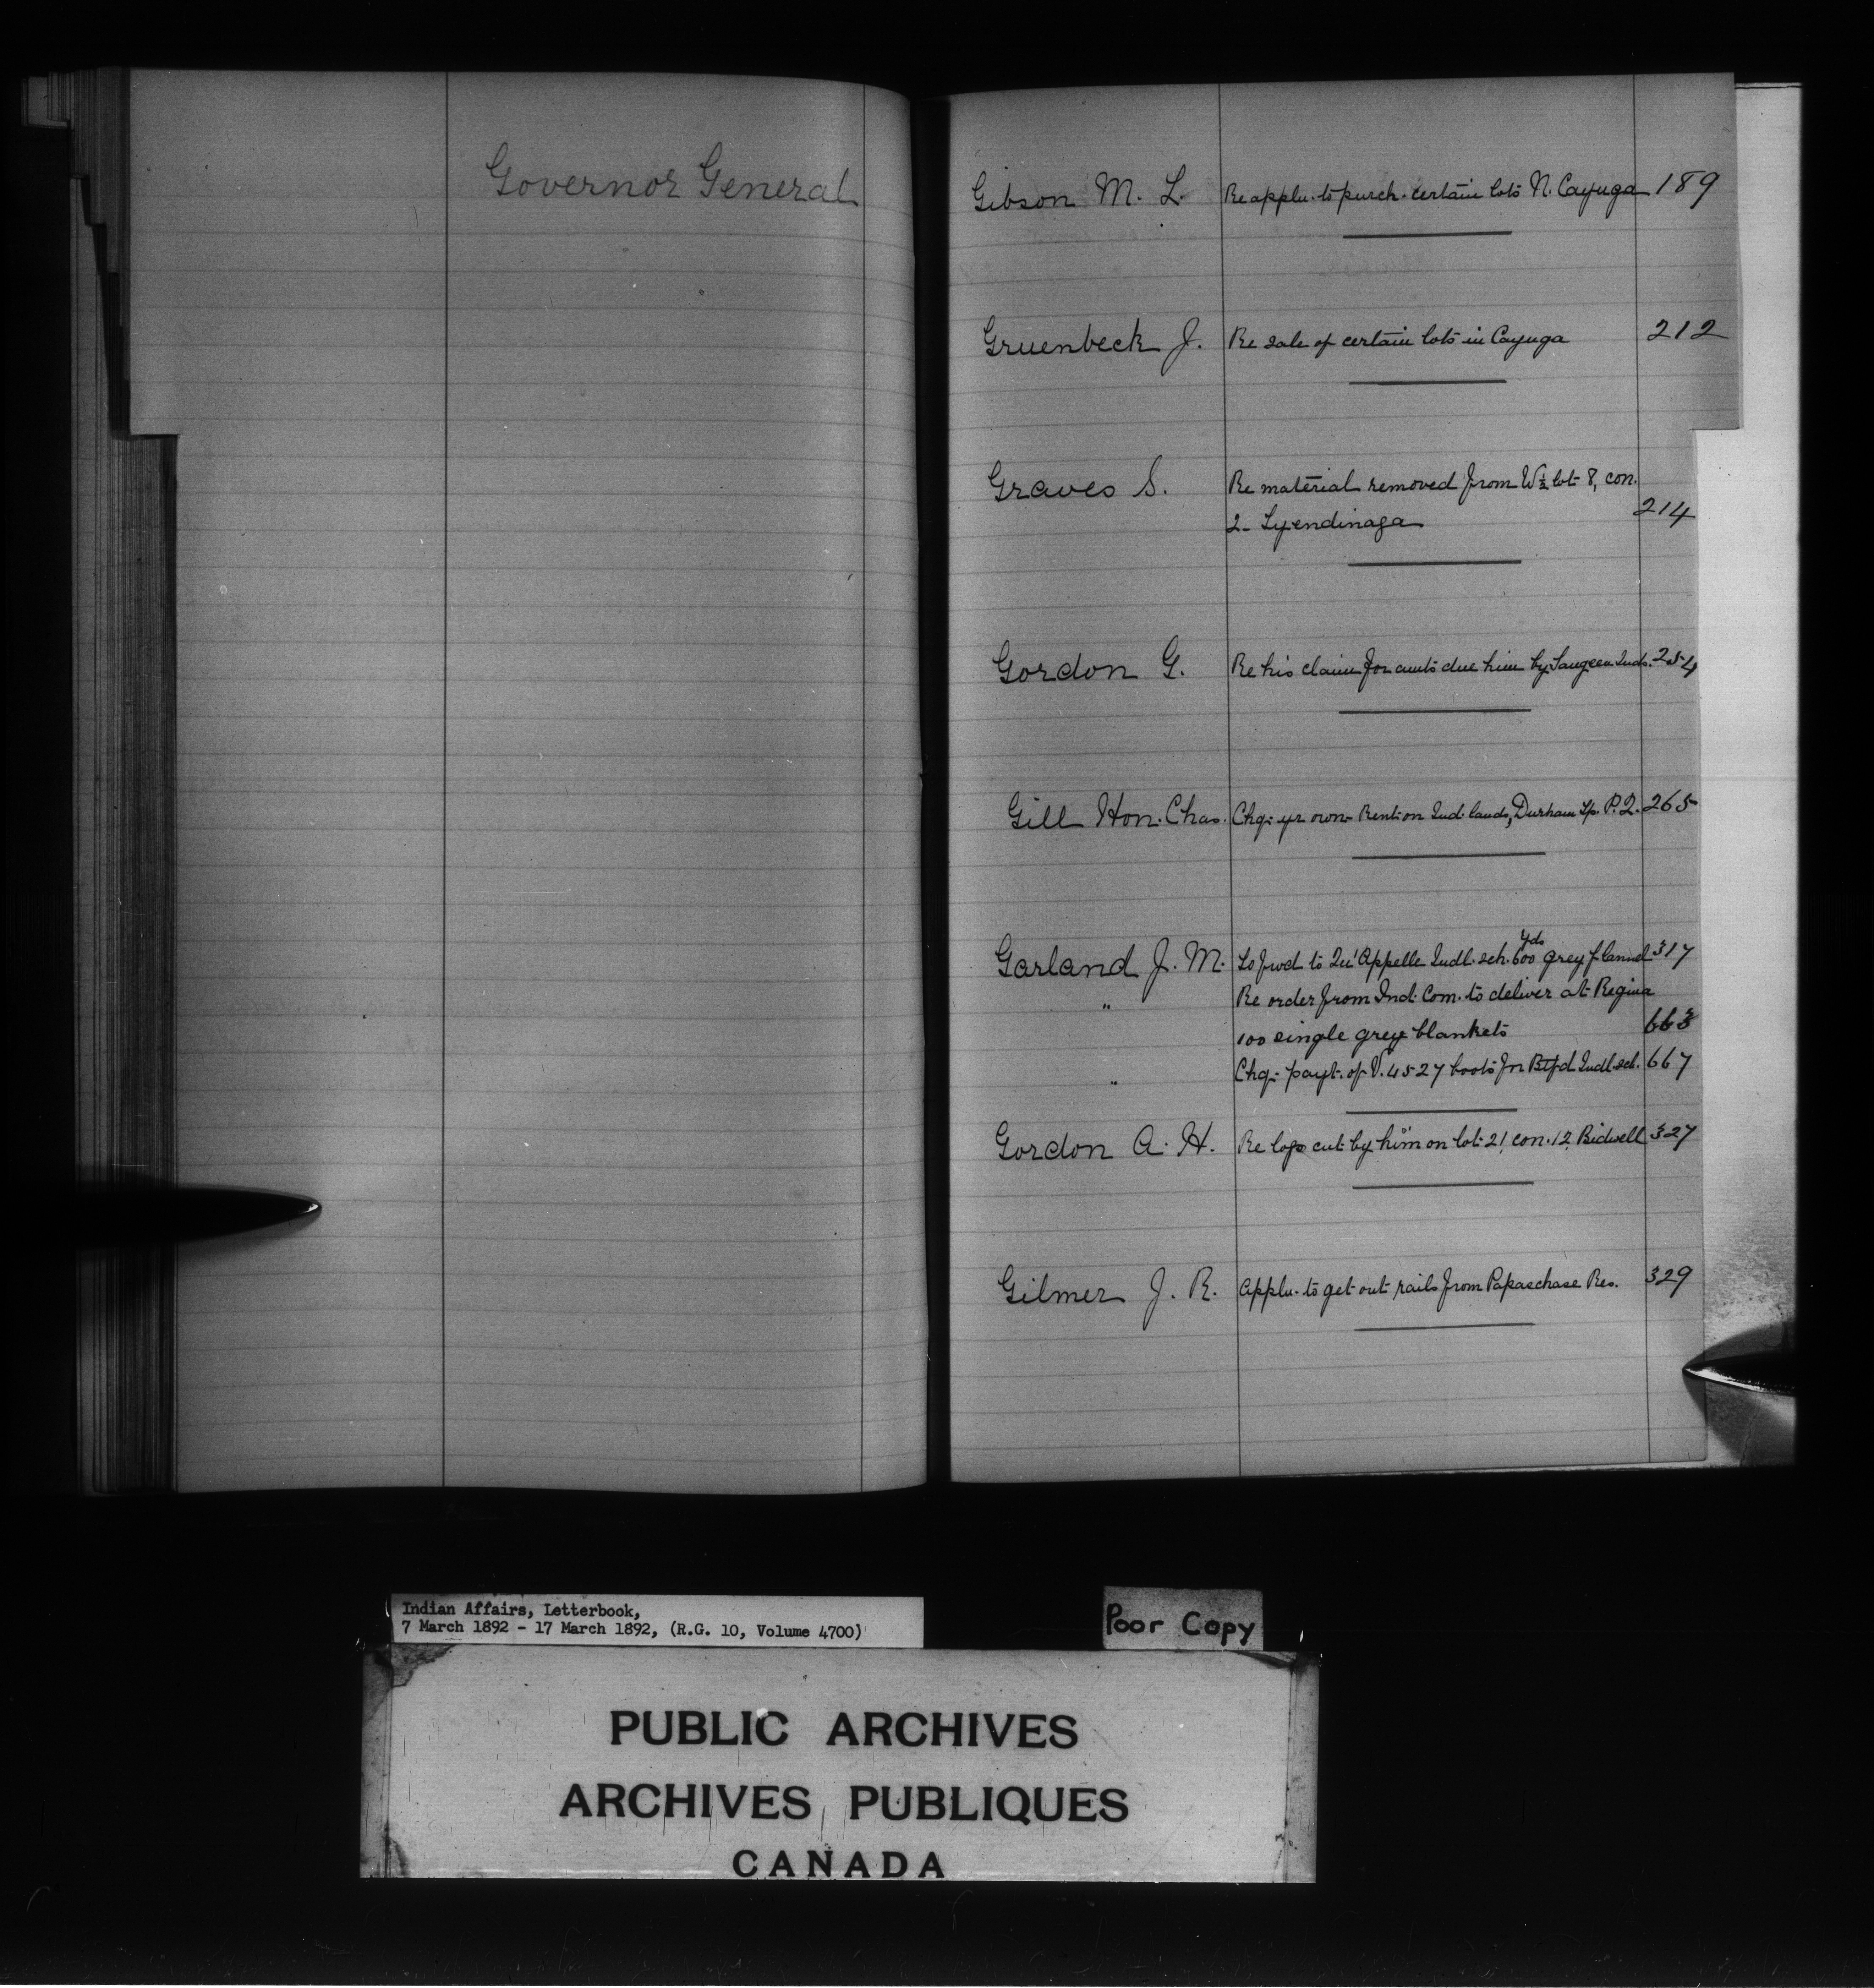 Governor General
Gibson M. L. Re applu. to purch. certain lots N. Cayuga 189
Gruenbeck J. Re sale of certain lots in Cayuga 212
Graves S. Re material removed from W½ lot 8, con.
2 - Tyendinaga 214
Gordon G. Re his claim for amts due him by Saugeen Inds. 254
Gill Hon. Chas. Chq. yr own - Rent on Ind. lands, Durham Tp. P.Q. 265
Garland J. M. To fwd to Qu'Appelle Indl. sch. 600 yds grey flannel 317
" Re order from Ind. Com. to deliver at Regina
100 single grey blankets 663
" Chq. payt. of V. 4527 boots for Btfd Indl. sch. 667
Gordon A. H. Re logs cut by him on lot 21, con. 12, Bidwell 327
Gilmer J. R. Applu. to get out rails from Papaschase Res. 329
Indian Affairs, Letterbook,
7 March 1892 - 17 March 1892, (R.G. 10, Volume 4700)
Poor Copy
PUBLIC ARCHIVES
ARCHIVES PUBLIQUES
CANADA